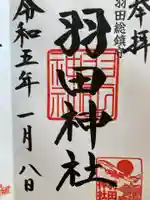 奉拝
羽田総鎮守
羽田神社
令和五年一月八日